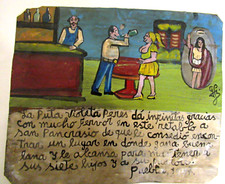 La Puta Violeta Peres dá infinitas gracias
con mucho fervor en este retablo a
san Pancrasio de que le consedió encon-
trar un lugar en donde gana buena
lana y le alcansa para mantener a
sus siete hijos y a su
Puebl